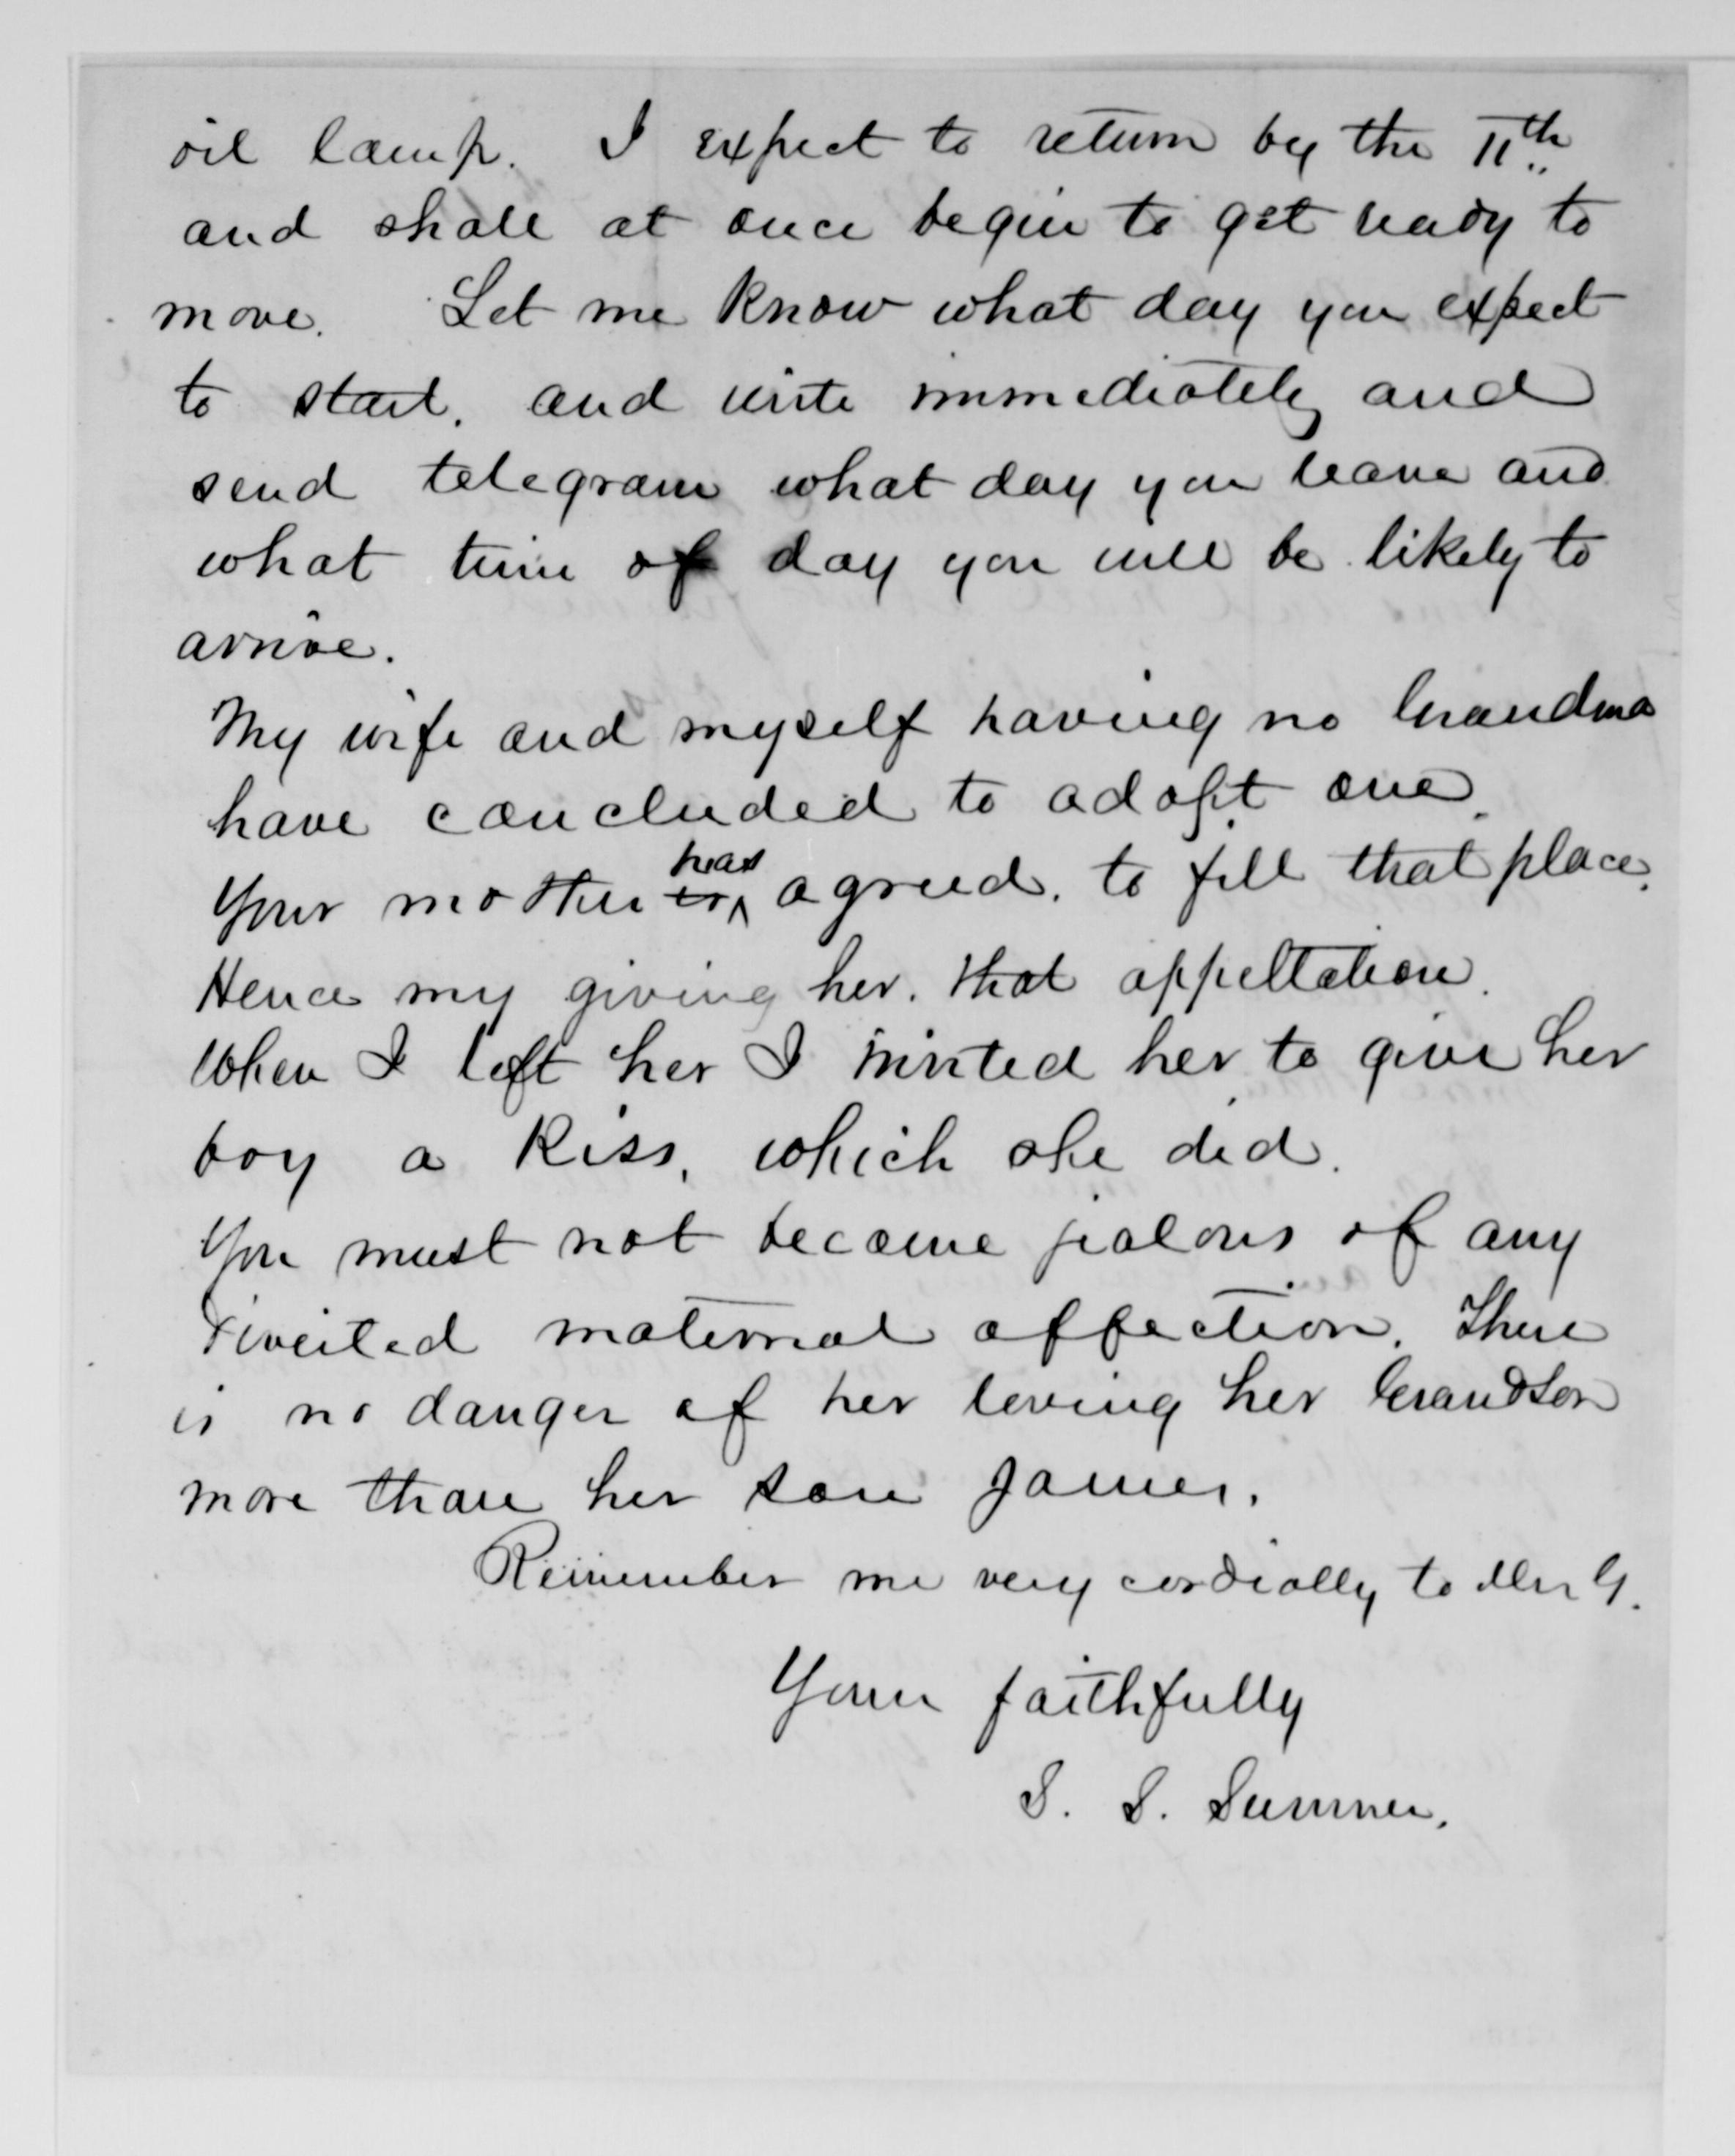 oil lamp. I expect to return by the 11th
and shall at once begin to get ready to
move. Let me know what day you expect
to start. and write immediately and
send telegram what day you leave and
what time of day you will be likely to
arrive.
My wife and myself having no Grandma
have concluded to adopt one.
Your mother to has agreed. to fill that place.
Hence my giving her. that appellation.
When I left her I invited her to give her
boy a Kiss, which she did.
You must not become jealous of any
diverted maternal affection. There
is no danger of her loving her Grandson
more than her son James.
Remember me very cordially to Mrs G.
Yours faithfully
S. S. Sumner.